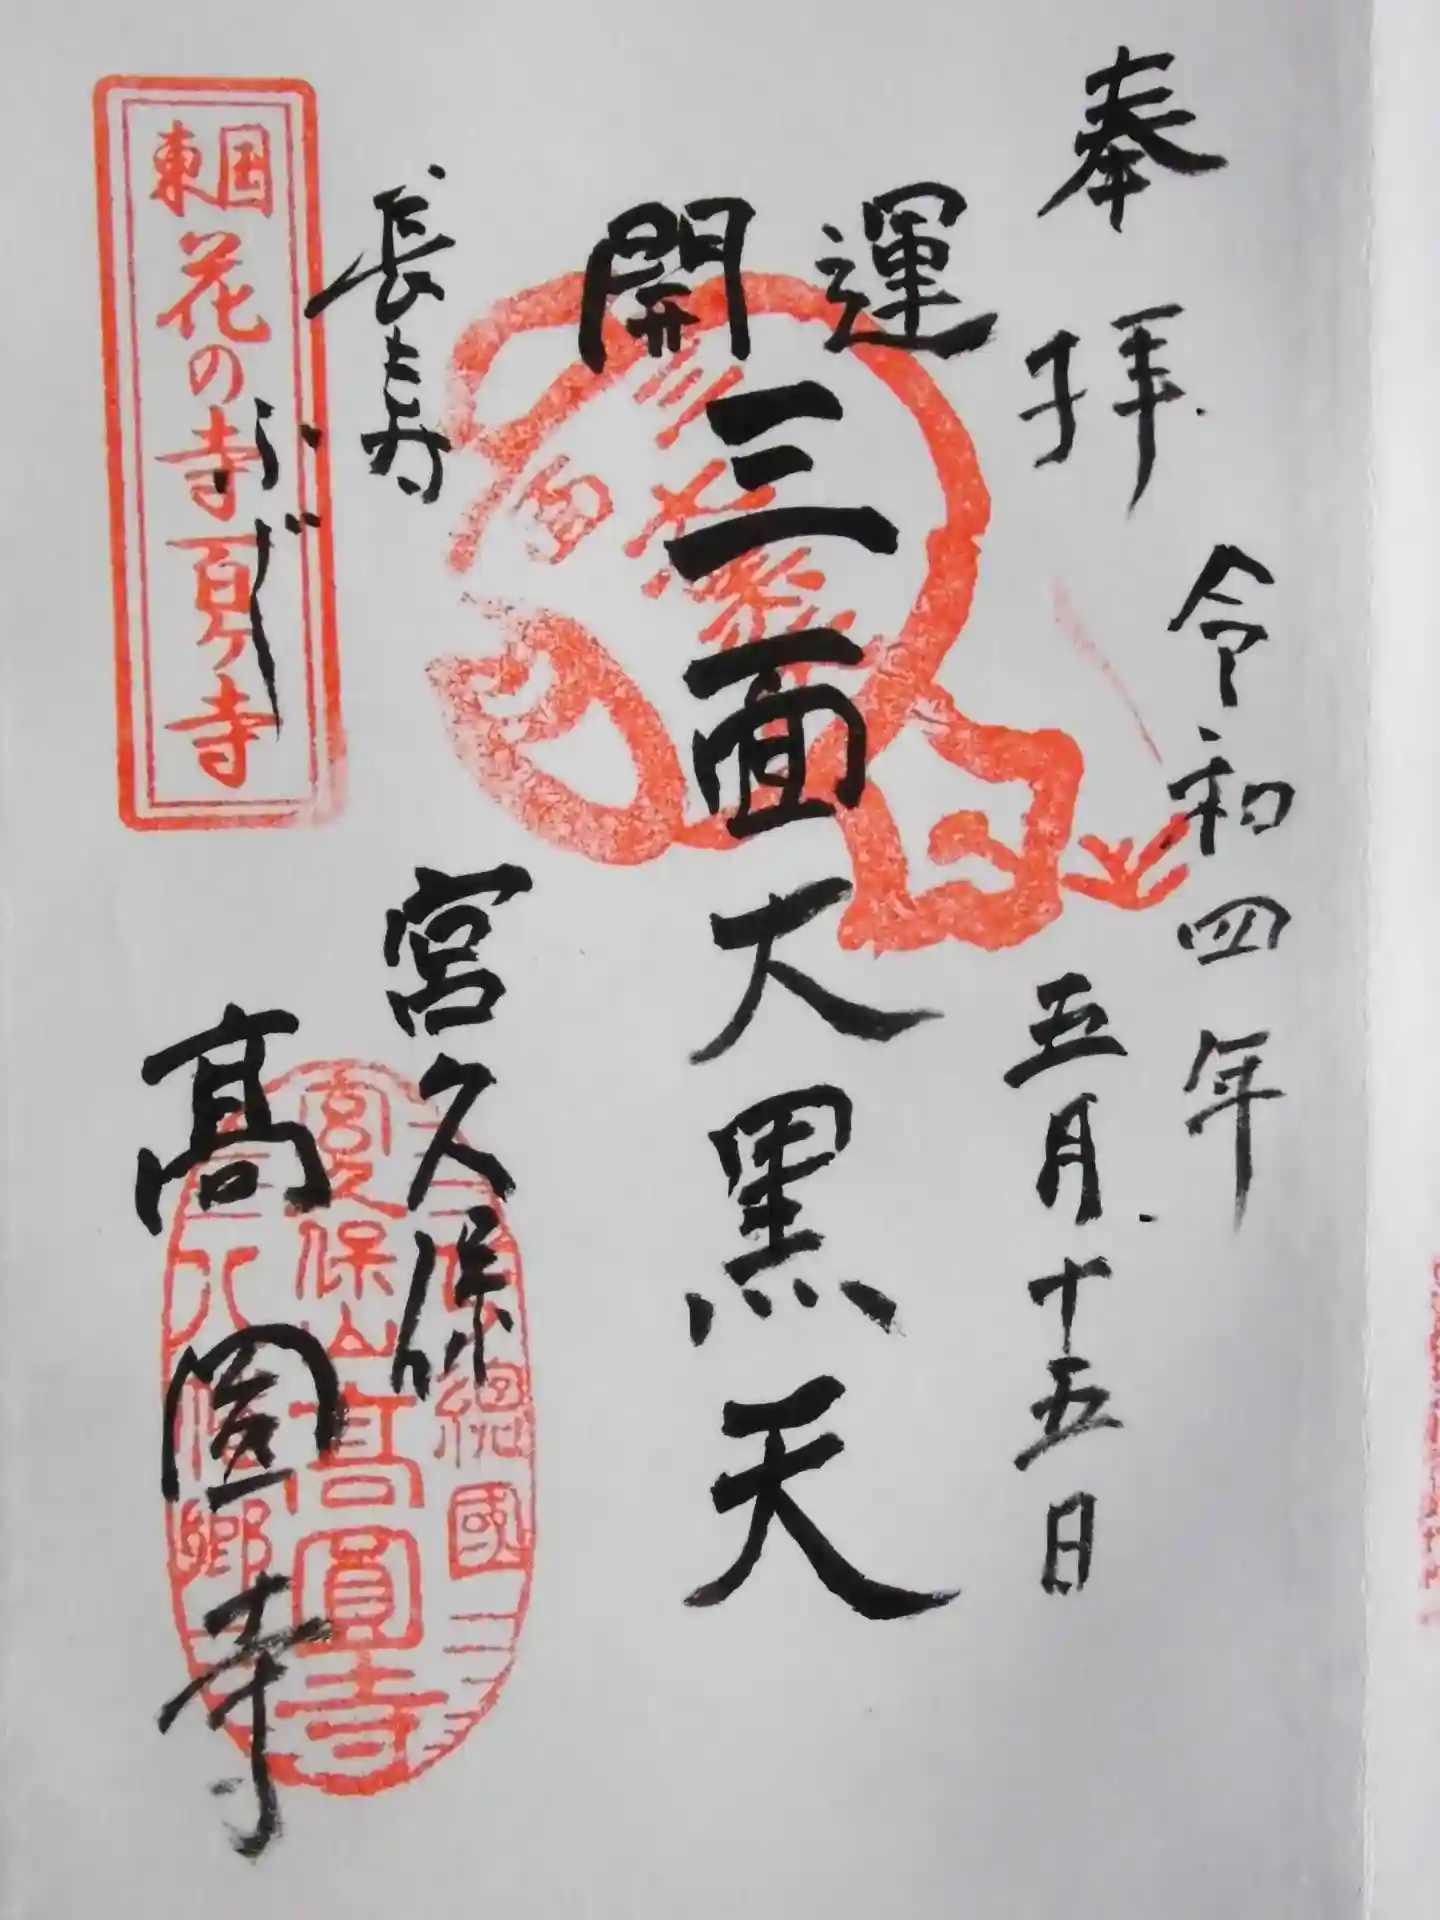 奉拝
令和四年
五月十五日
開運
三面大黒天
宮久保
高圓寺
長寿
ふじ
東国
花の寺百ヶ寺
総國
保山高圓寺
郷